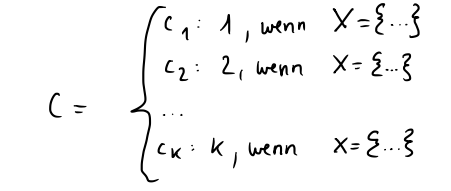 c₁: 1, wenn X={...}
c₂: 2, wenn X={...}
C = { ...
cₖ: k, wenn X={...}